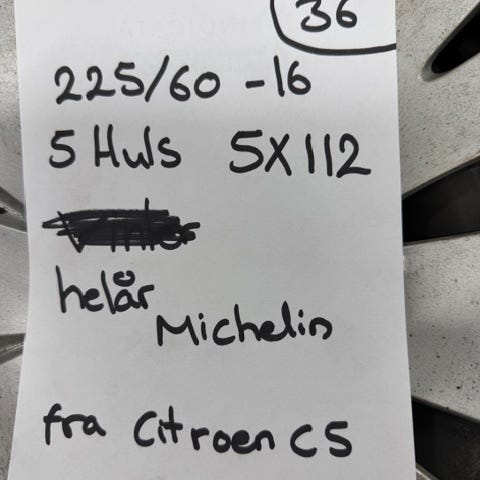 36
225/60 -16
5 Huls 5X112
helår
Michelin
fra Citroen C5